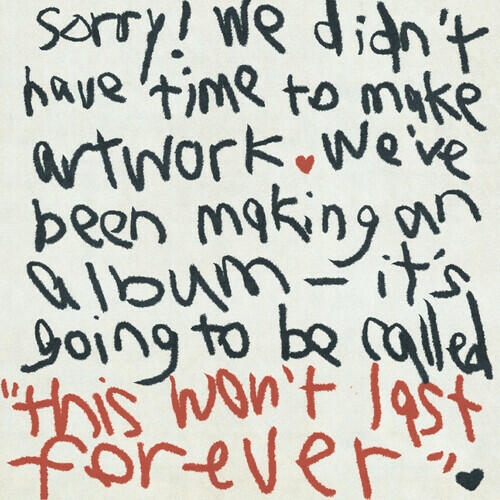 sorry! we didn't
have time to make
artwork ♥ we've
been making an
album – it's
going to be called
"this won't last
forever" ♥